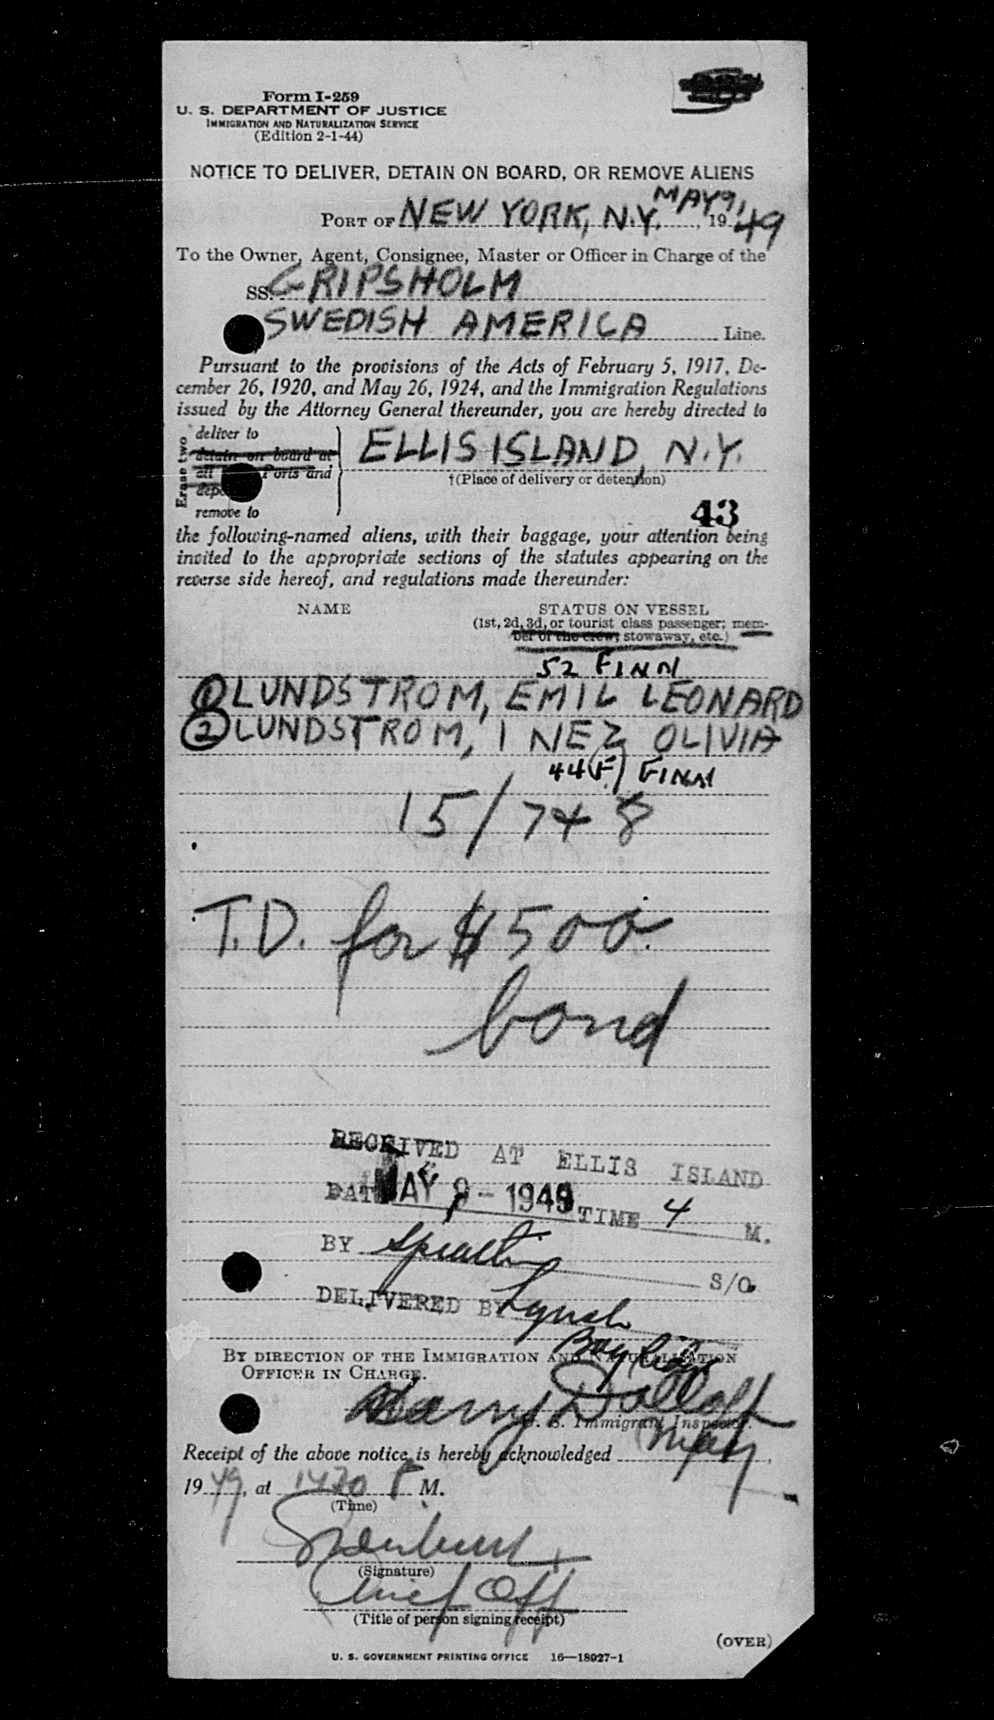 Form I-259
U. S. DEPARTMENT OF JUSTICE
IMMIGRATION AND NATURALIZATION SERVICE
(Edition 2-1-44)
NOTICE TO DELIVER, DETAIN ON BOARD, OR REMOVE ALIENS
PORT OF NEW YORK, N.Y. MAY 9, 1949
To the Owner, Agent, Consignee, Master or Officer in Charge of the
SS. GRIPSHOLM
SWEDISH AMERICA Line.
Pursuant to the provisions of the Acts of February 5, 1917, De-
cember 26, 1920, and May 26, 1924, and the Immigration Regulations
issued by the Attorney General thereunder, you are hereby directed to
Erase two
deliver to
detain on board at
all Ports and
remove to
ELLIS ISLAND, N.Y.
†(Place of delivery or detention)
43
the following-named aliens, with their baggage, your attention being
invited to the appropriate sections of the statutes appearing on the
reverse side hereof, and regulations made thereunder:
NAME STATUS ON VESSEL
(1st, 2d, 3d, or tourist class passenger; mem-
ber of the crew; stowaway, etc.)
52 FINN
① LUNDSTROM, EMIL LEONARD
② LUNDSTROM, INEZ OLIVIA
44 (F) FINN
15/748
T.D. for $500.
bond
RECEIVED AT ELLIS ISLAND
DATE MAY 9 - 1949 TIME 4 M.
BY S/O
DELIVERED BY Lynch
BY DIRECTION OF THE IMMIGRATION AND NATURALIZATION
OFFICER IN CHARGE.
Harry
U. S. Immigrant Inspector.
Receipt of the above notice is hereby acknowledged May,
1949, at 1430 P M.
(Time)
(Signature)
Chief Off
(Title of person signing receipt)
(OVER)
U. S. GOVERNMENT PRINTING OFFICE 16—18027-1